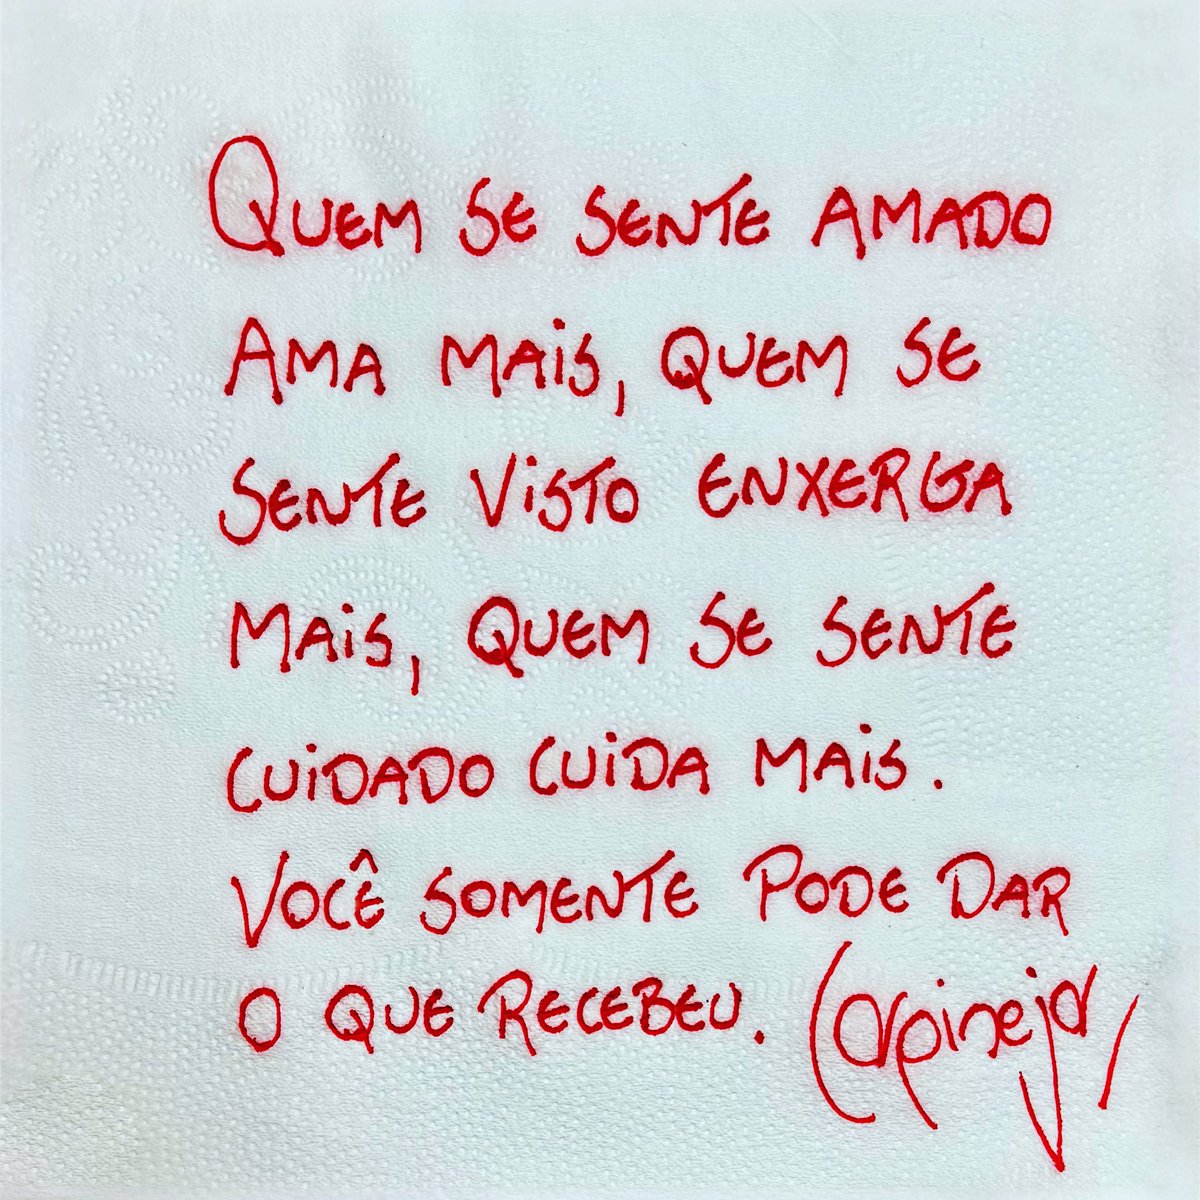 QUEM SE SENTE AMADO
AMA MAIS, QUEM SE
SENTE VISTO ENXERGA
MAIS, QUEM SE SENTE
CUIDADO CUIDA MAIS.
VOCÊ SOMENTE PODE DAR
O QUE RECEBEU. Carpinejar